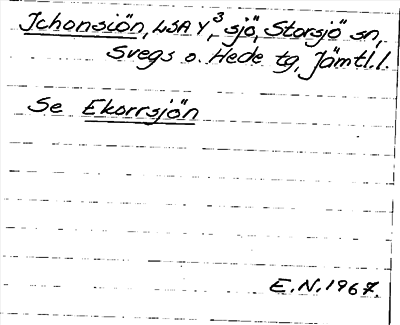 Ichonsiön, LSA Y,³ sjö, Storsjö sn,
Svegs o. Hede tg, Jämtl. l.
Se Ekorrsjön
E.N. 1967.